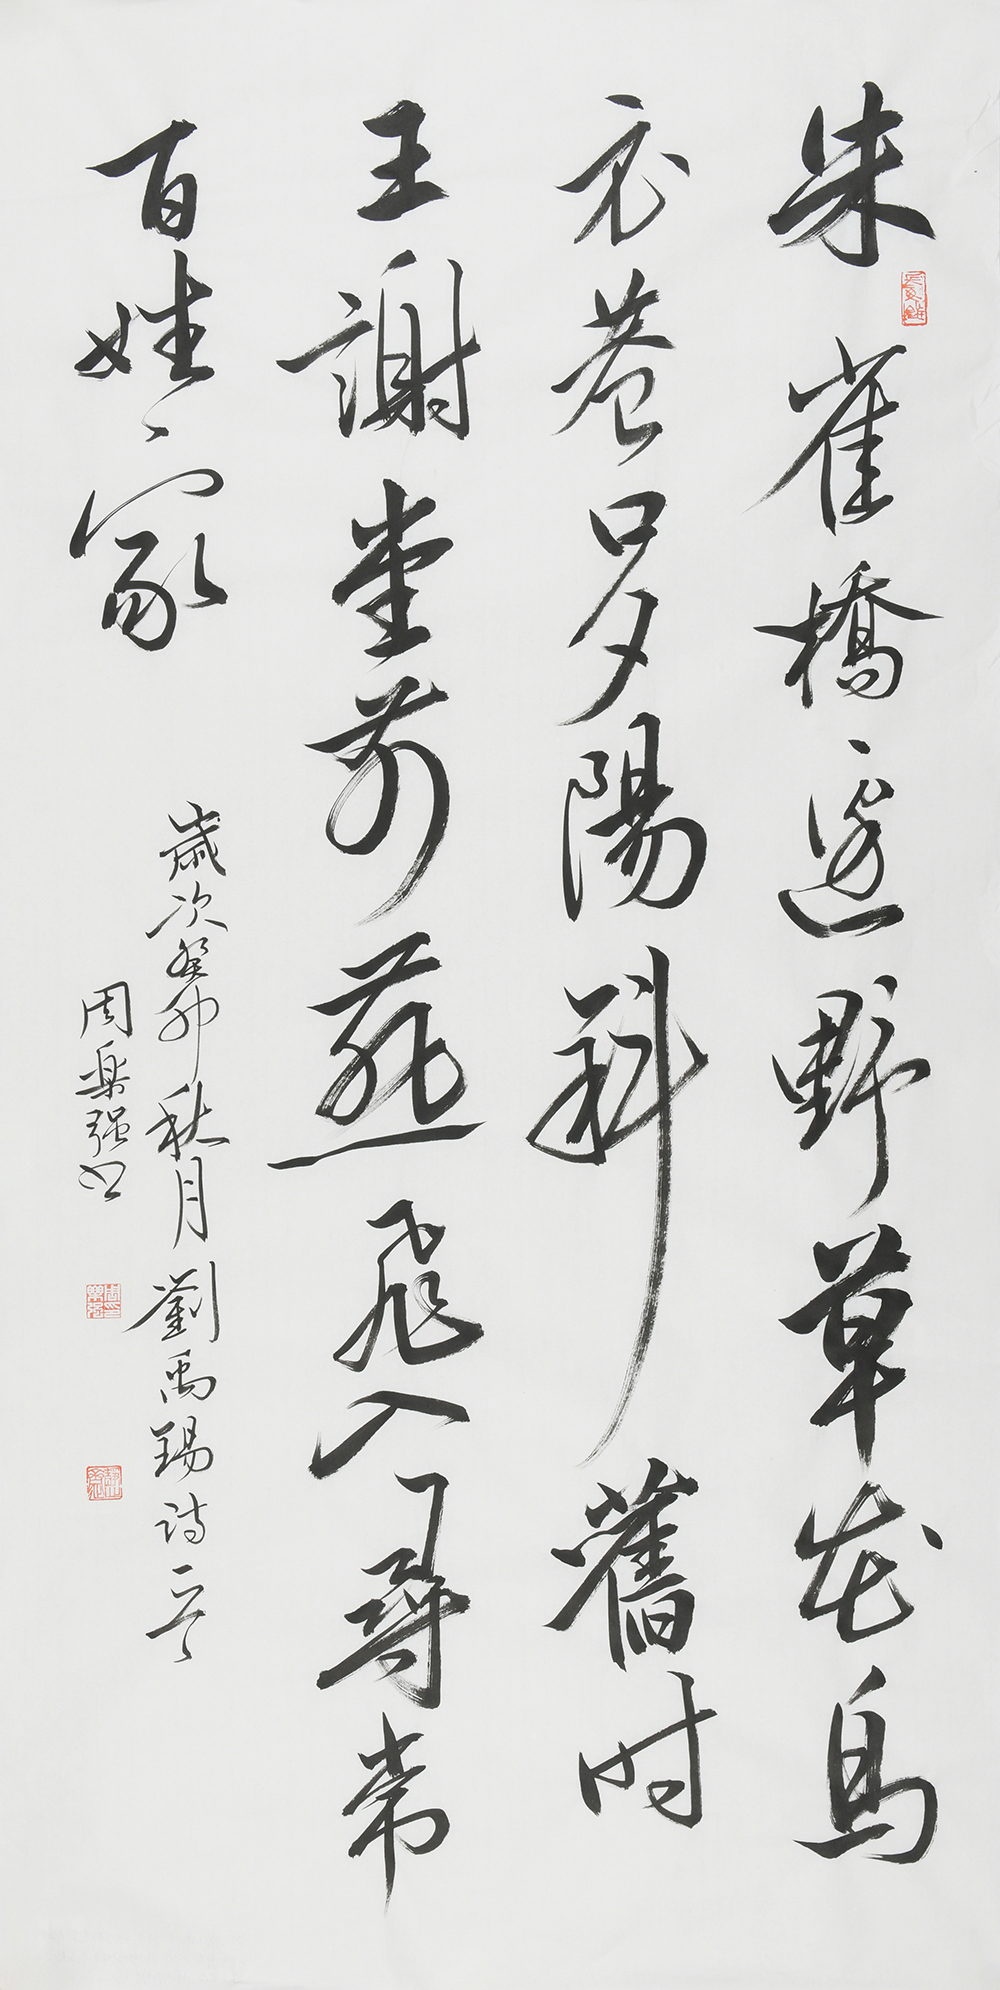 朱雀橋邊野草花烏
衣巷口夕陽斜舊时
王謝堂前燕飛入尋常
百姓家
歲次癸卯秋月劉禹錫詩一首
周樂强书